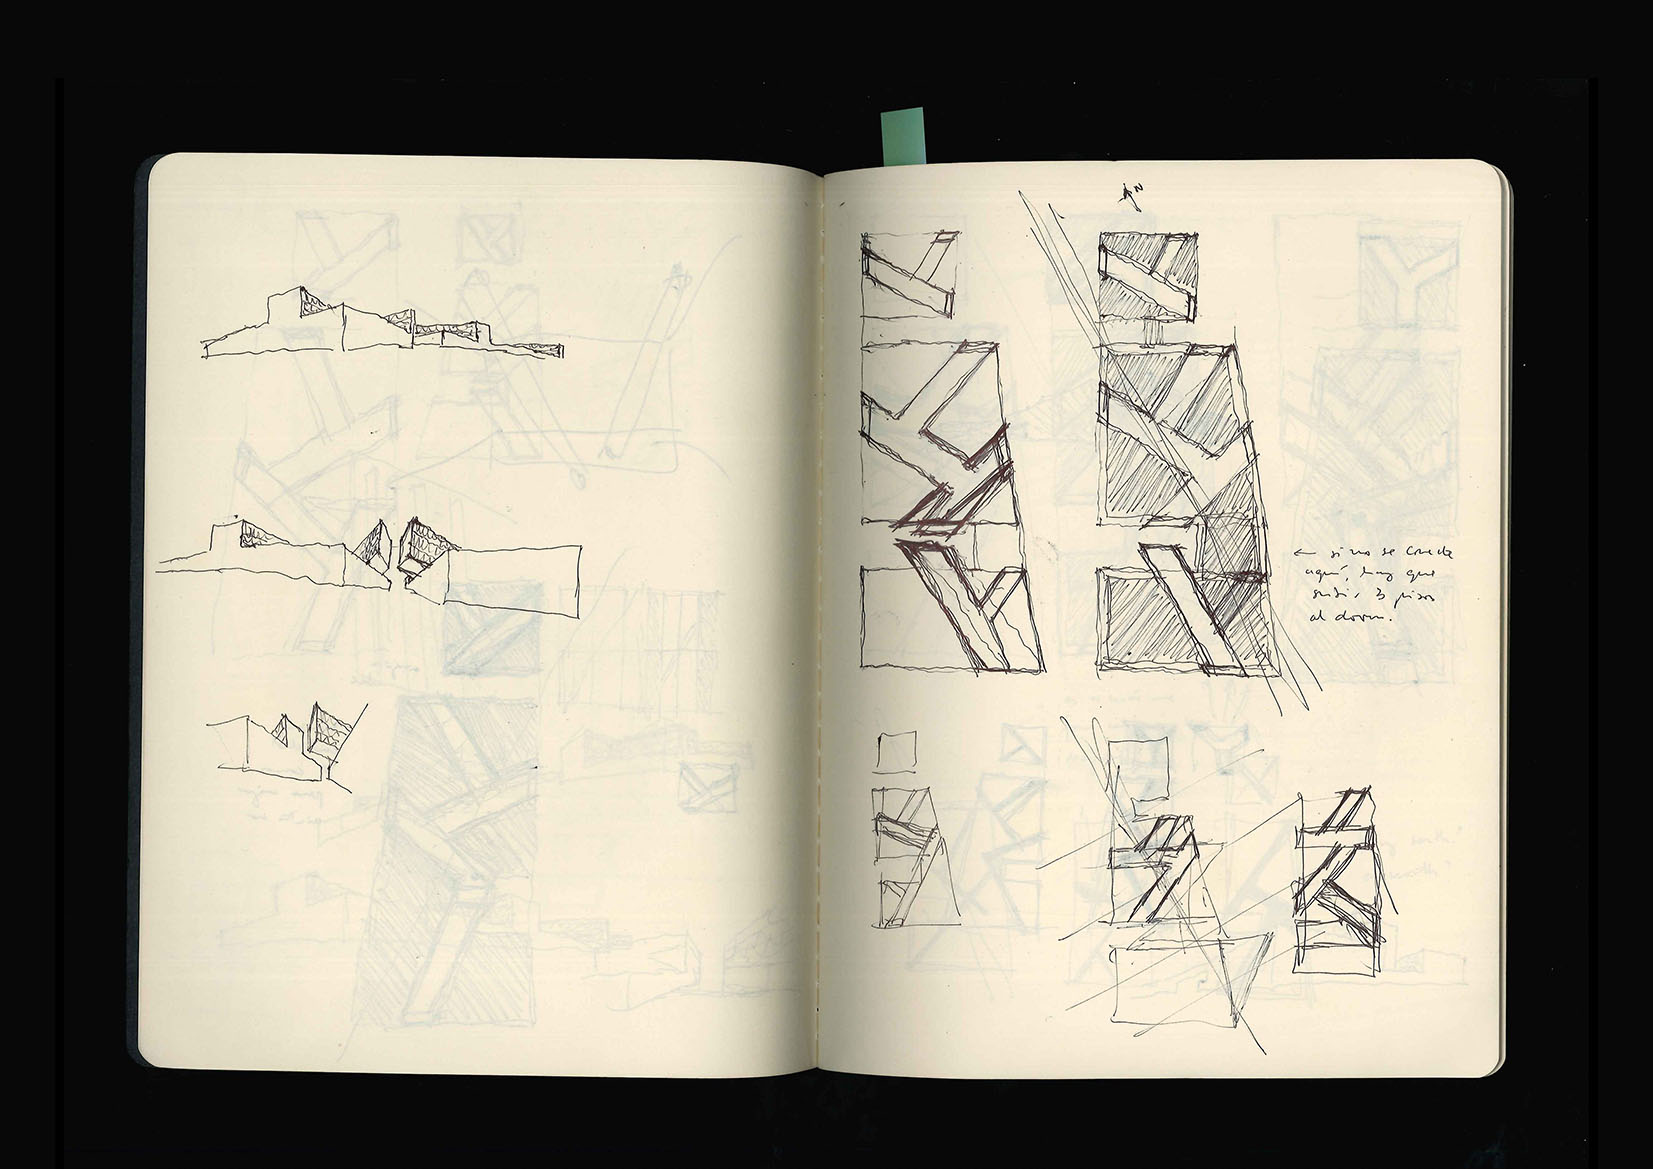 N
← si no se conecta
aquí, hay que
subir 3 pisos
al dorm.